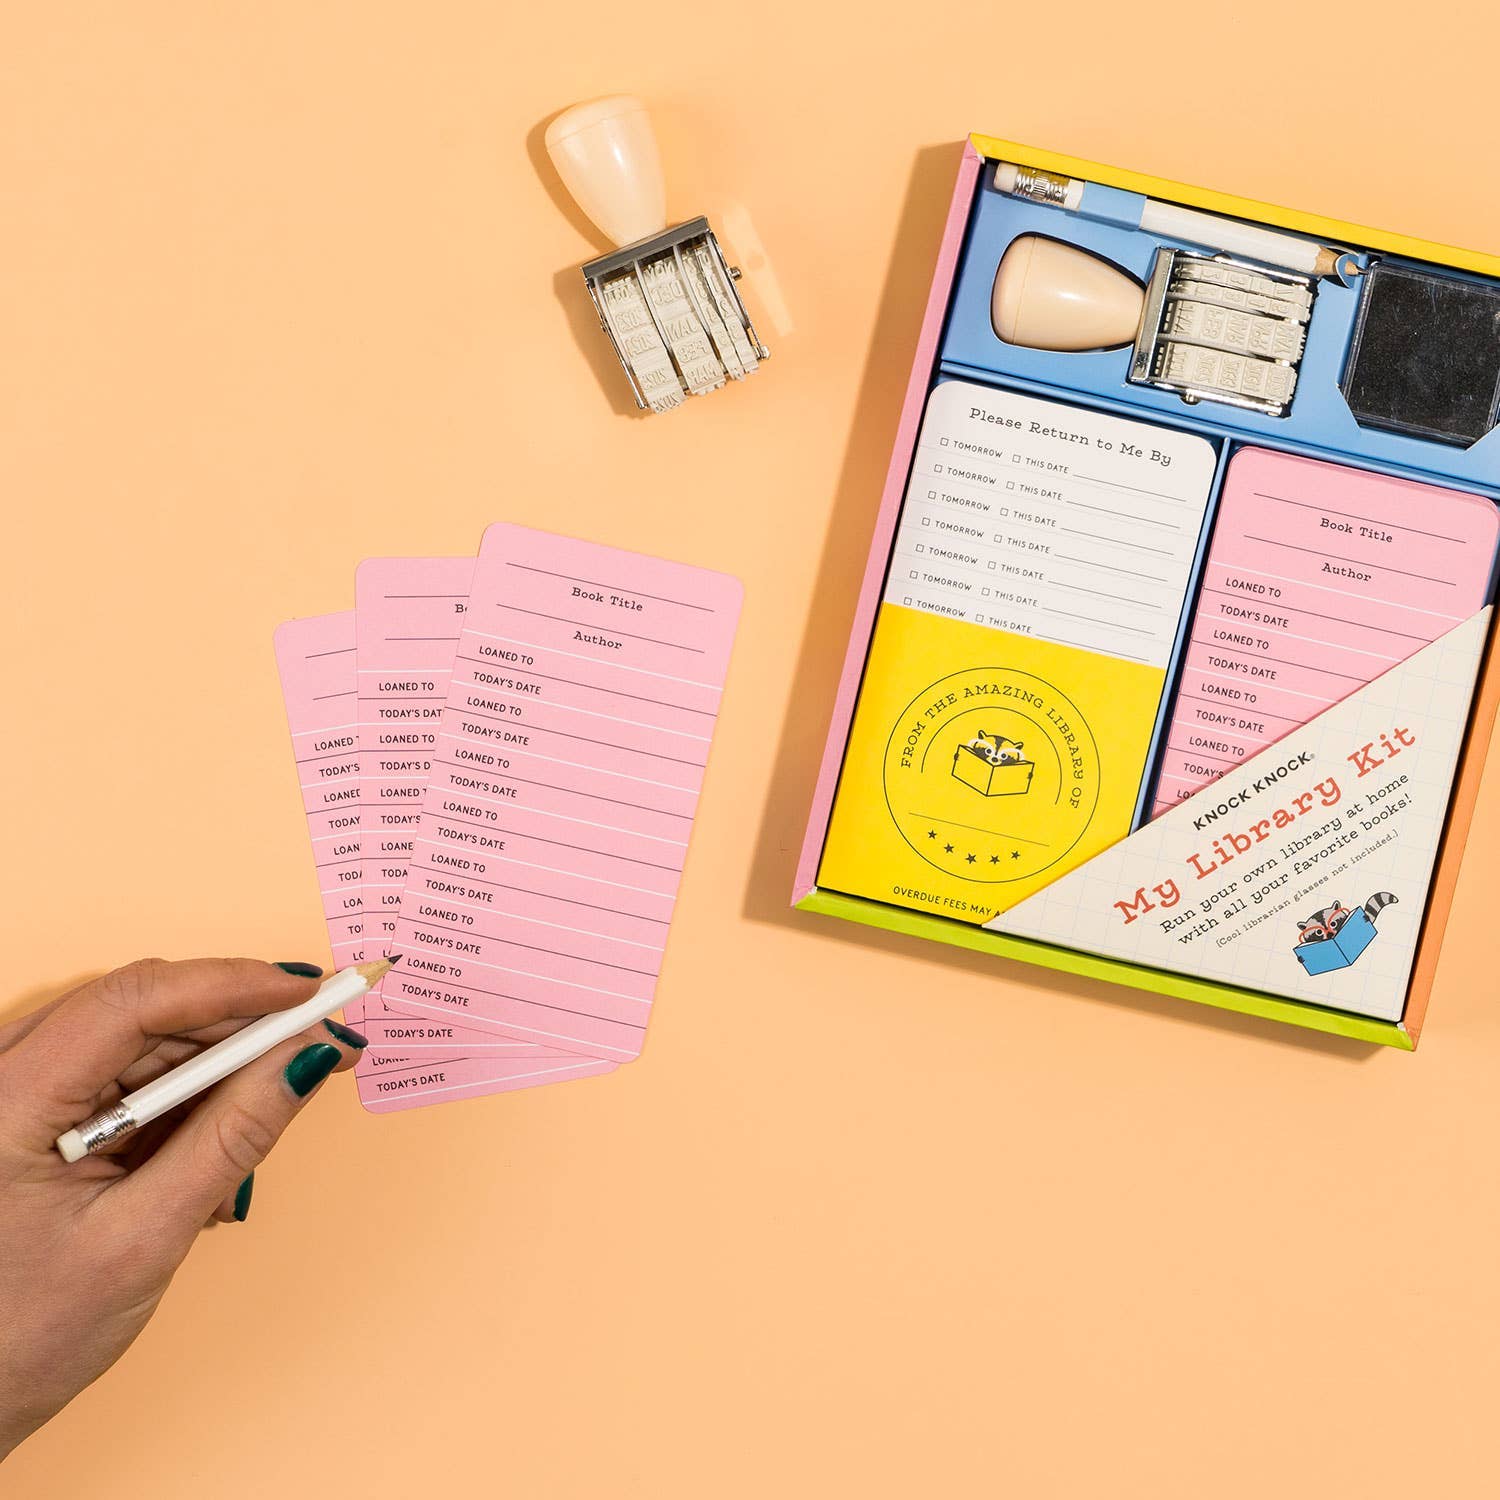 Please Return to Me By
TOMORROW THIS DATE
TOMORROW THIS DATE
TOMORROW THIS DATE
TOMORROW THIS DATE
TOMORROW THIS DATE
TOMORROW THIS DATE
TOMORROW THIS DATE
FROM THE AMAZING LIBRARY OF
OVERDUE FEES MAY
Book Title
Author
LOANED TO
TODAY'S DATE
LOANED TO
TODAY'S DATE
LOANED TO
TODAY'S DATE
LOANED TO
TODAY'S
KNOCK KNOCK®
My Library Kit
Run your own library at home
with all your favorite books!
(Cool librarian glasses not included.)
Book Title
Author
LOANED TO
TODAY'S DATE
LOANED TO
TODAY'S DATE
LOANED TO
TODAY'S DATE
LOANED TO
TODAY'S DATE
LOANED TO
TODAY'S DATE
LOANED TO
TODAY'S DATE
LOANED TO
TODAY'S DATE
LOANED TO
TODAY'S DAT
LOANED TO
TODAY'S D
LOANED T
TODAY'S
LOANE
TODAY
LOA
TOD
LO
TODAY'S DATE
LOANED
TODAY'S
LOANE
TODAY
LOAN
TODA
LOA
TO
LO
TODAY'S DATE